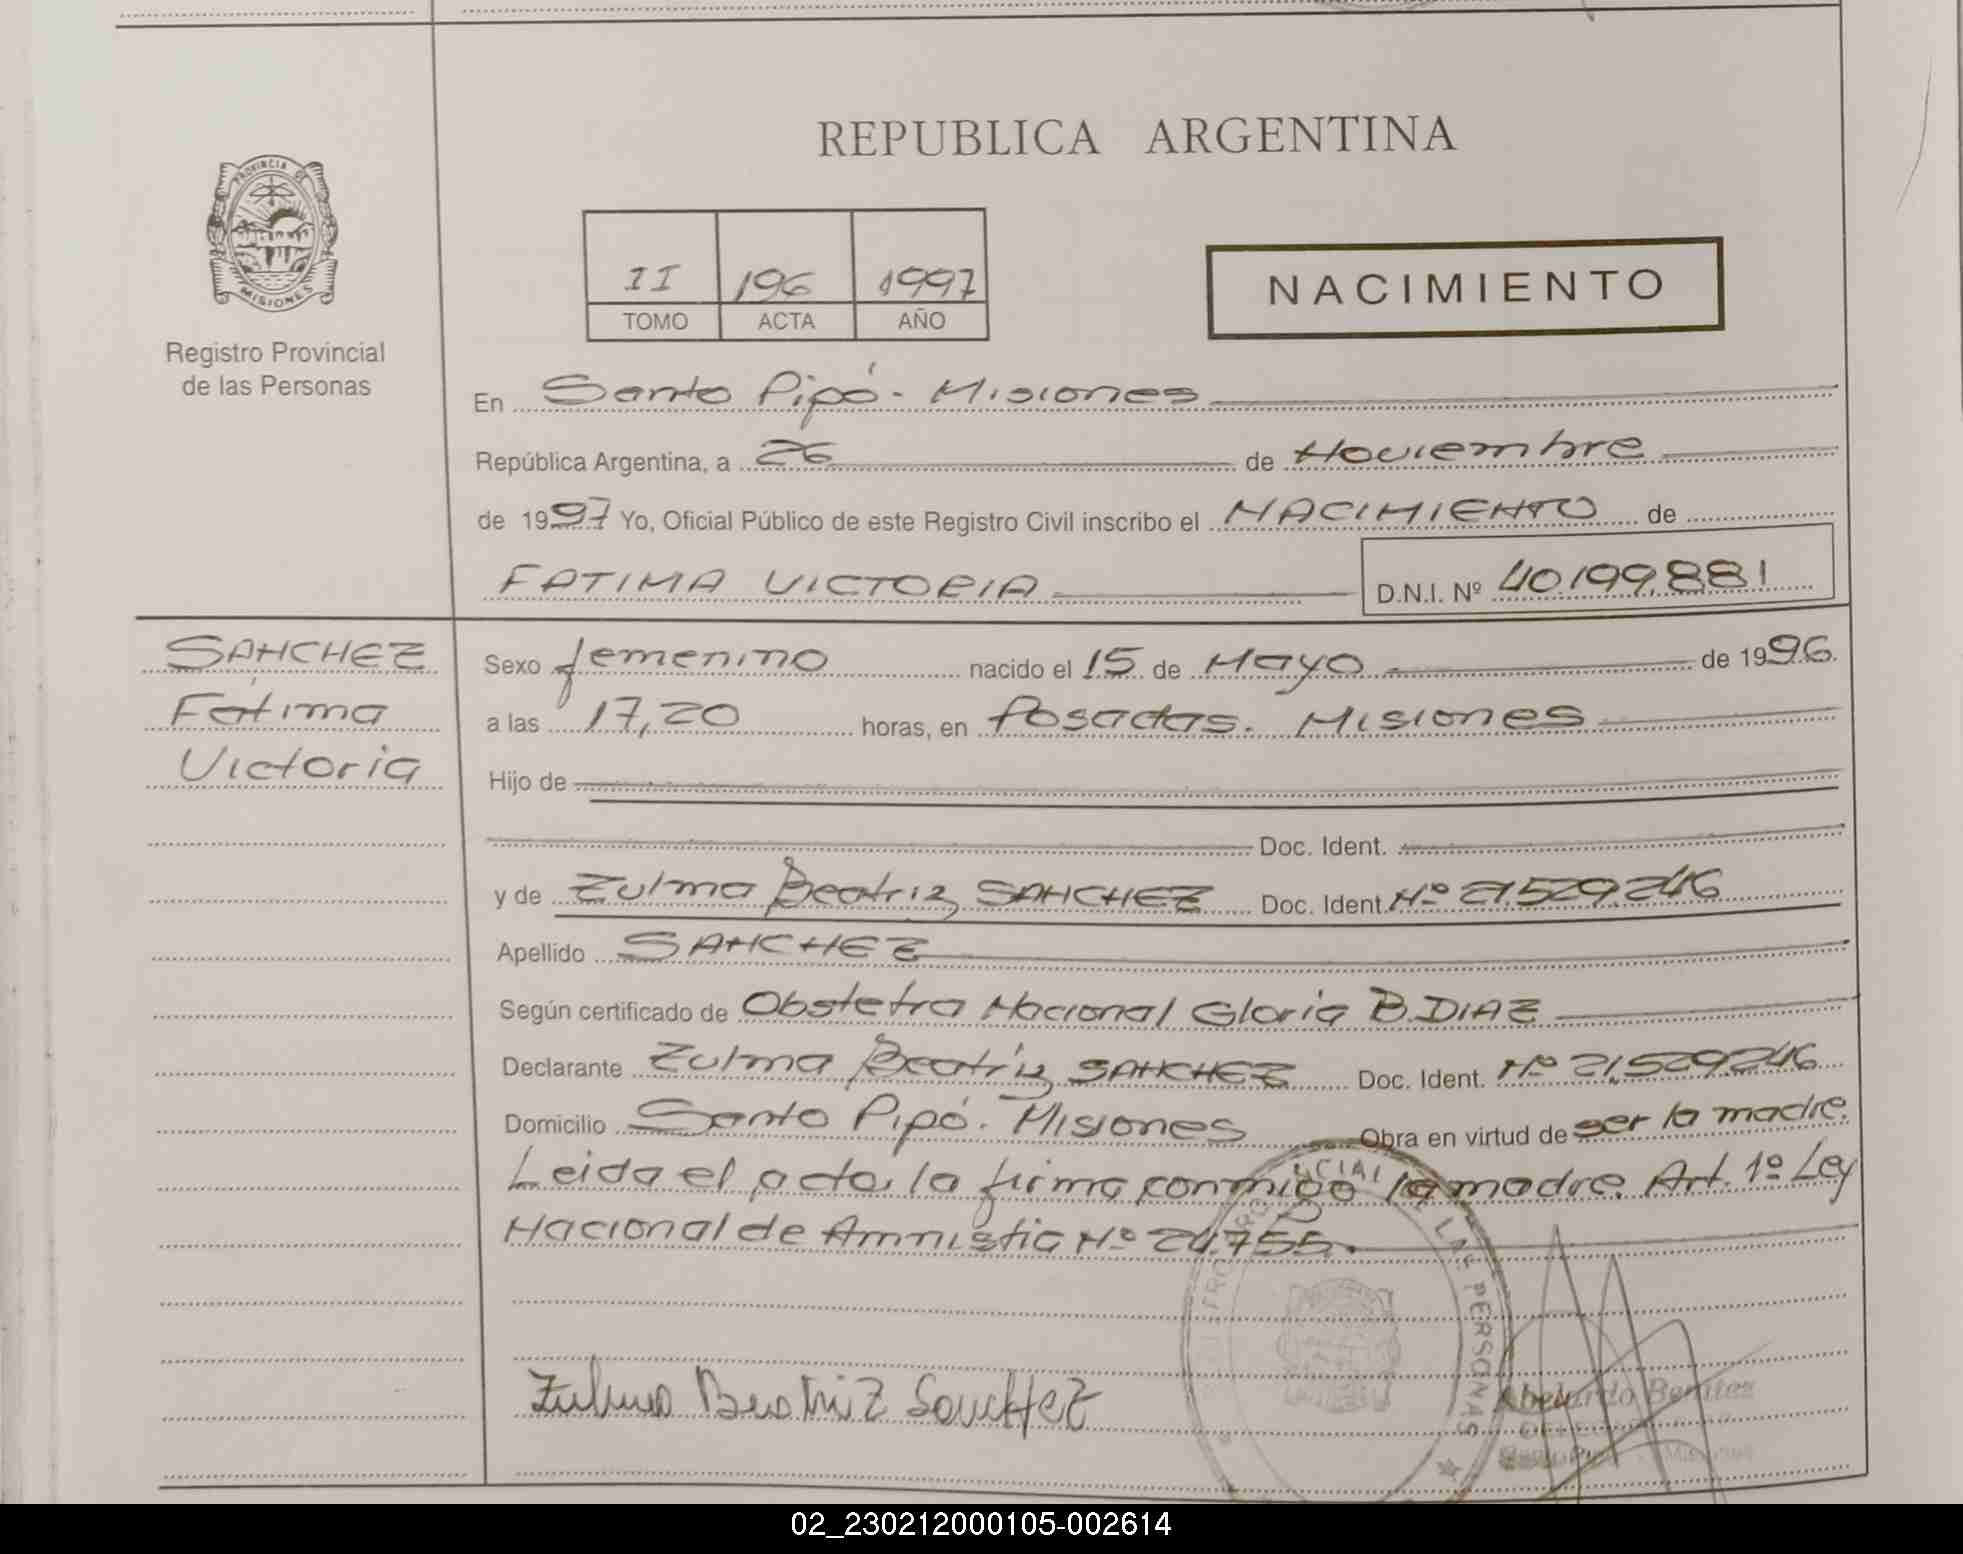 REPUBLICA ARGENTINA
PROVINCIA DE
MISIONES
Registro Provincial
de las Personas
II 196 1997
TOMO ACTA AÑO
NACIMIENTO
En Santo Pipó - Misiones
República Argentina, a 26 de Noviembre
de 1997 Yo, Oficial Público de este Registro Civil inscribo el NACIMIENTO de
FATIMA VICTORIA D.N.I. Nº 40.199.881
SANCHEZ
Fátima
Victoria
Sexo femenino nacido el 15 de Mayo de 1996.
a las 17,20 horas, en Posadas. Misiones
Hijo de
Doc. Ident.
y de Zulma Beatriz SANCHEZ Doc. Ident. Nº 21.529.246
Apellido SANCHEZ
Según certificado de Obstetra Nacional Gloria B. DIAZ
Declarante Zulma Beatriz SANCHEZ Doc. Ident. Nº 21.529.246
Domicilio Santo Pipó. Misiones Obra en virtud de ser la madre.
Leida el acta, la firma conmigo la madre. Art. 1º Ley
Nacional de Amnistia Nº 24.755.
PERSONAS
Zulma Beatriz SancHeZ
Abelardo Benitez
02_230212000105-002614